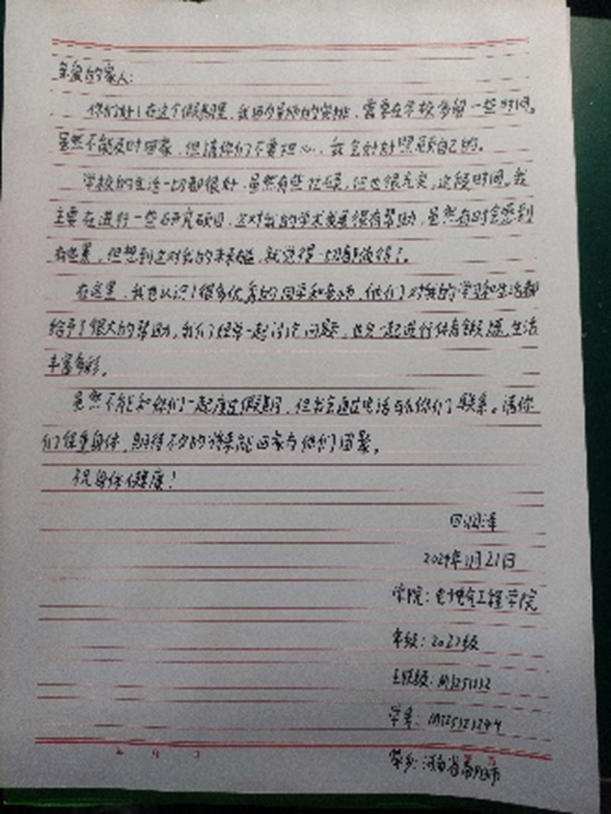 亲爱的家人:
你们好!在这个假期里,我因为的安排,需要在学校多留一些时间。
虽然不能及时回家,但请你们不要担心,我会好好照顾自己的。
学校的生活一切都很好,虽然有些忙碌,但也很充实。这段时间,我
主要在进行一些研究项目,这对我的学术发展很有帮助,虽然有时会感到
有些累,但想到这对我的未来有益,就觉得一切都值得了。
在这里,我也认识了很多优秀的同学和老师,他们对我的学习和生活都
给予了很大的帮助,我们经常一起讨论问题,也会一起进行体育锻炼,生活
丰富多彩。
虽然不能和你们一起度过假期,但我会通过电话与你们联系。请你
们保重身体,期待不久的将来能回家与你们团聚。
祝身体健康!
2024年11月21日
学院:电子电气工程学院
年级:
班级:
学号:
家乡:河南省